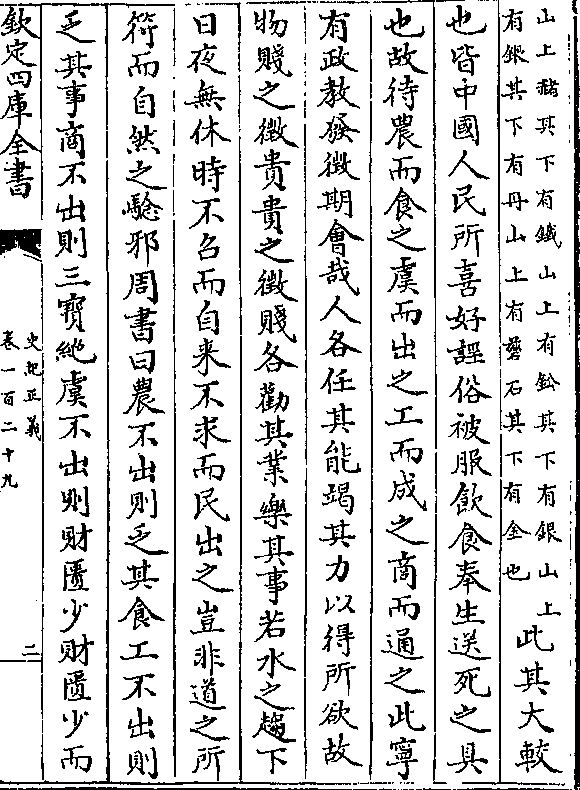 山上赭其下有鐵山上有鉛其下有銀山上
有銀其下有丹山上有磬石其下有金也
此其大較
也皆中國人民所喜好謡俗被服飲食奉生送死之具
也故待農而食之虞而出之工而成之商而通之此寧
有政教發徵期㑹哉人各任其能竭其力以得所欲故
物賤之徵貴貴之徵賤各勸其業樂其事若水之趨下
日夜無休時不召而自来不求而民出之豈非道之所
符而自然之騐邪周書曰農不出則乏其食工不出則
乏其事商不出則三寳絶虞不出則財匱少財匱少而
欽定四庫全書
史記正義
卷一百二十九
二